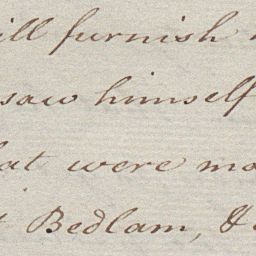 ill furnish
saw himself
hat were mo
Bedlam, &